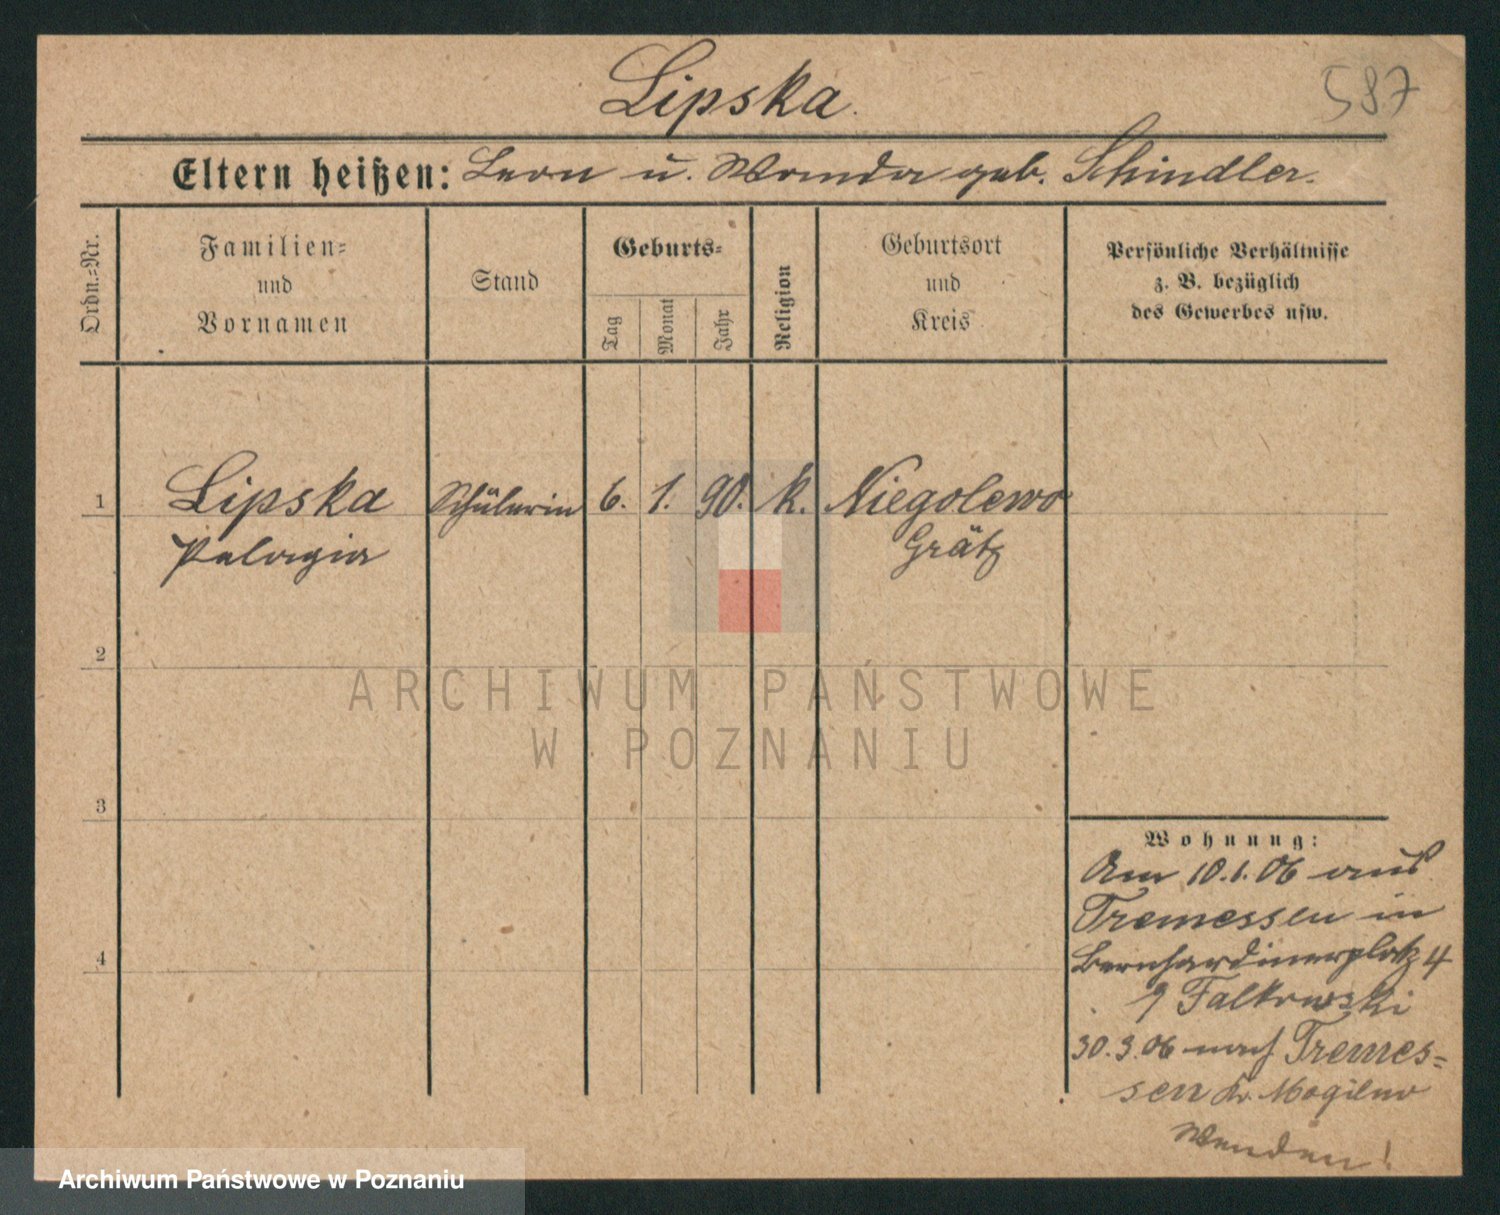 Lipska.
587
Eltern heißen: Leon u. Wanda geb. Schindler.
Ordn.=Nr.
Familien=
und
Vornamen
Stand
Geburts=
Tag
Monat
Jahr
Religion
Geburtsort
und
Kreis
Persönliche Verhältnisse
z. B. bezüglich
des Gewerbes usw.
1 Lipska Schülerin 6. 1. 90. k. Niegolewo
Pelagia Grätz
2
ARCHIWUM PAŃSTWOWE
W POZNANIU
3
Wohnung:
Am 10.1.06 aus
Tremessen in
Bernhardinerplatz 4
Falkowski
30.3.06 nach Tremes=
sen Kr. Mogilno
Wenden!
4
Archiwum Państwowe w Poznaniu